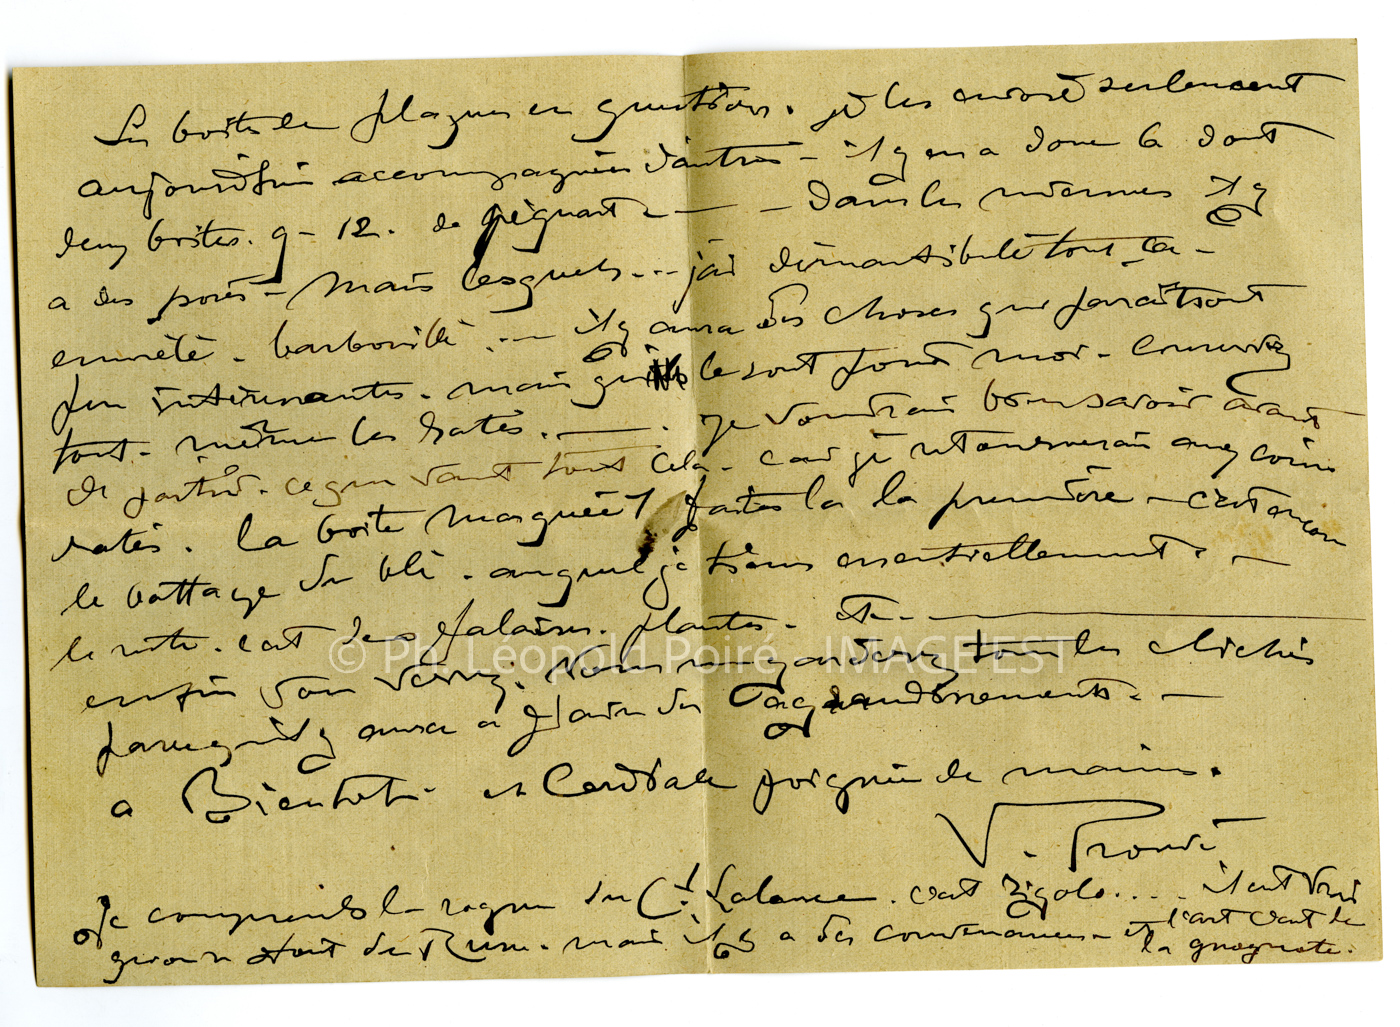 Les boites de plaques en question. je les envoie seulement
aujourd'hui accompagnées d'autres - il y en a donc 6 dont
deux boites. 9 - 12. de Péquart - - - dans les miennes il y
a des posés - mais lesquels... j'ai démantibulé tout ça -
emmêlé - barbouillé. - il y aura des choses qui paraitront
peu intéressantes - mais qui le sont pour moi - 
tout - même les ratés. - . je voudrais bien savoir avant
de partir - ce que vaut tout cela - car je retournerai aux coins
ratés. la boite marquée 1 faites la la première - c'est encore
le battage du blé - auquel je tiens essentiellement. -
le reste - c'est des falaises. plantes - etc. -
enfin vous verrez. vous me garderez tous les clichés
parce qu'il y aura a faire des agrandissements. -
a Bientot - et Cordiale poignée de mains.
V. Prouvé
Je comprends la du Ct. Lalance. c'est rigolo.... il est vrai
qu'on était de Revue - mais il y a des convenances - et l'art vaut de
la gnognote.
© Ph. Léopold Poiré - IMAGE'EST